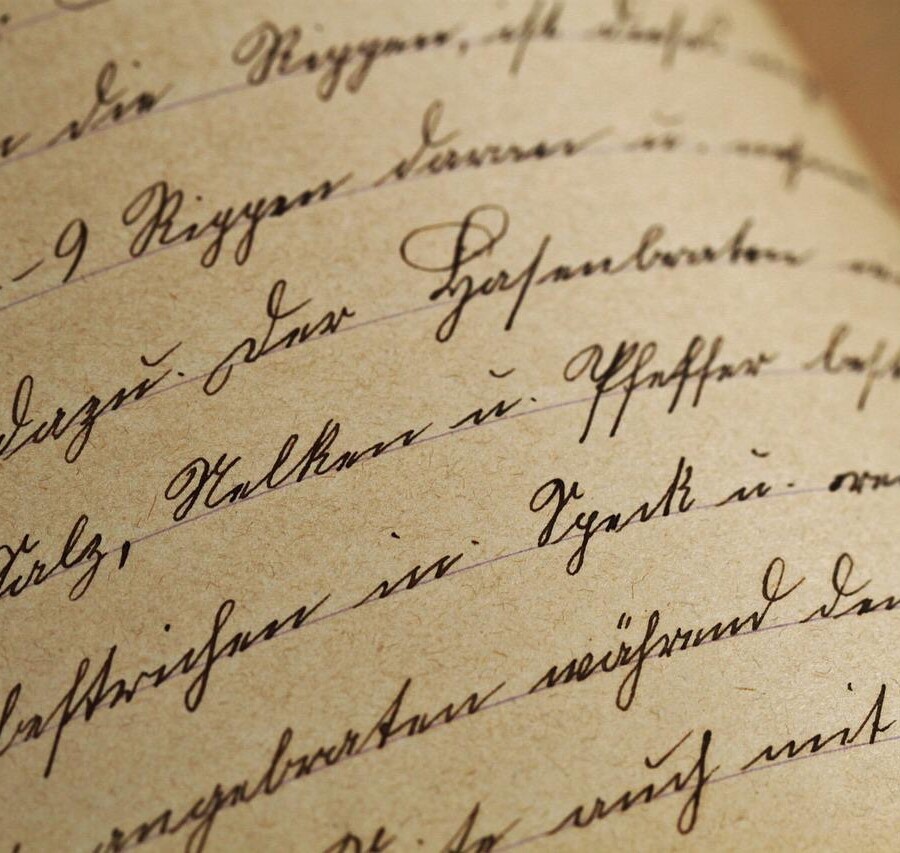 die Rippen, ist dieses
-9 Rippen daran u.
dazu. Der Hasenbraten
Salz, Nelken u. Pfeffer
bestrichen in Speck u.
angebraten während den
auch mit